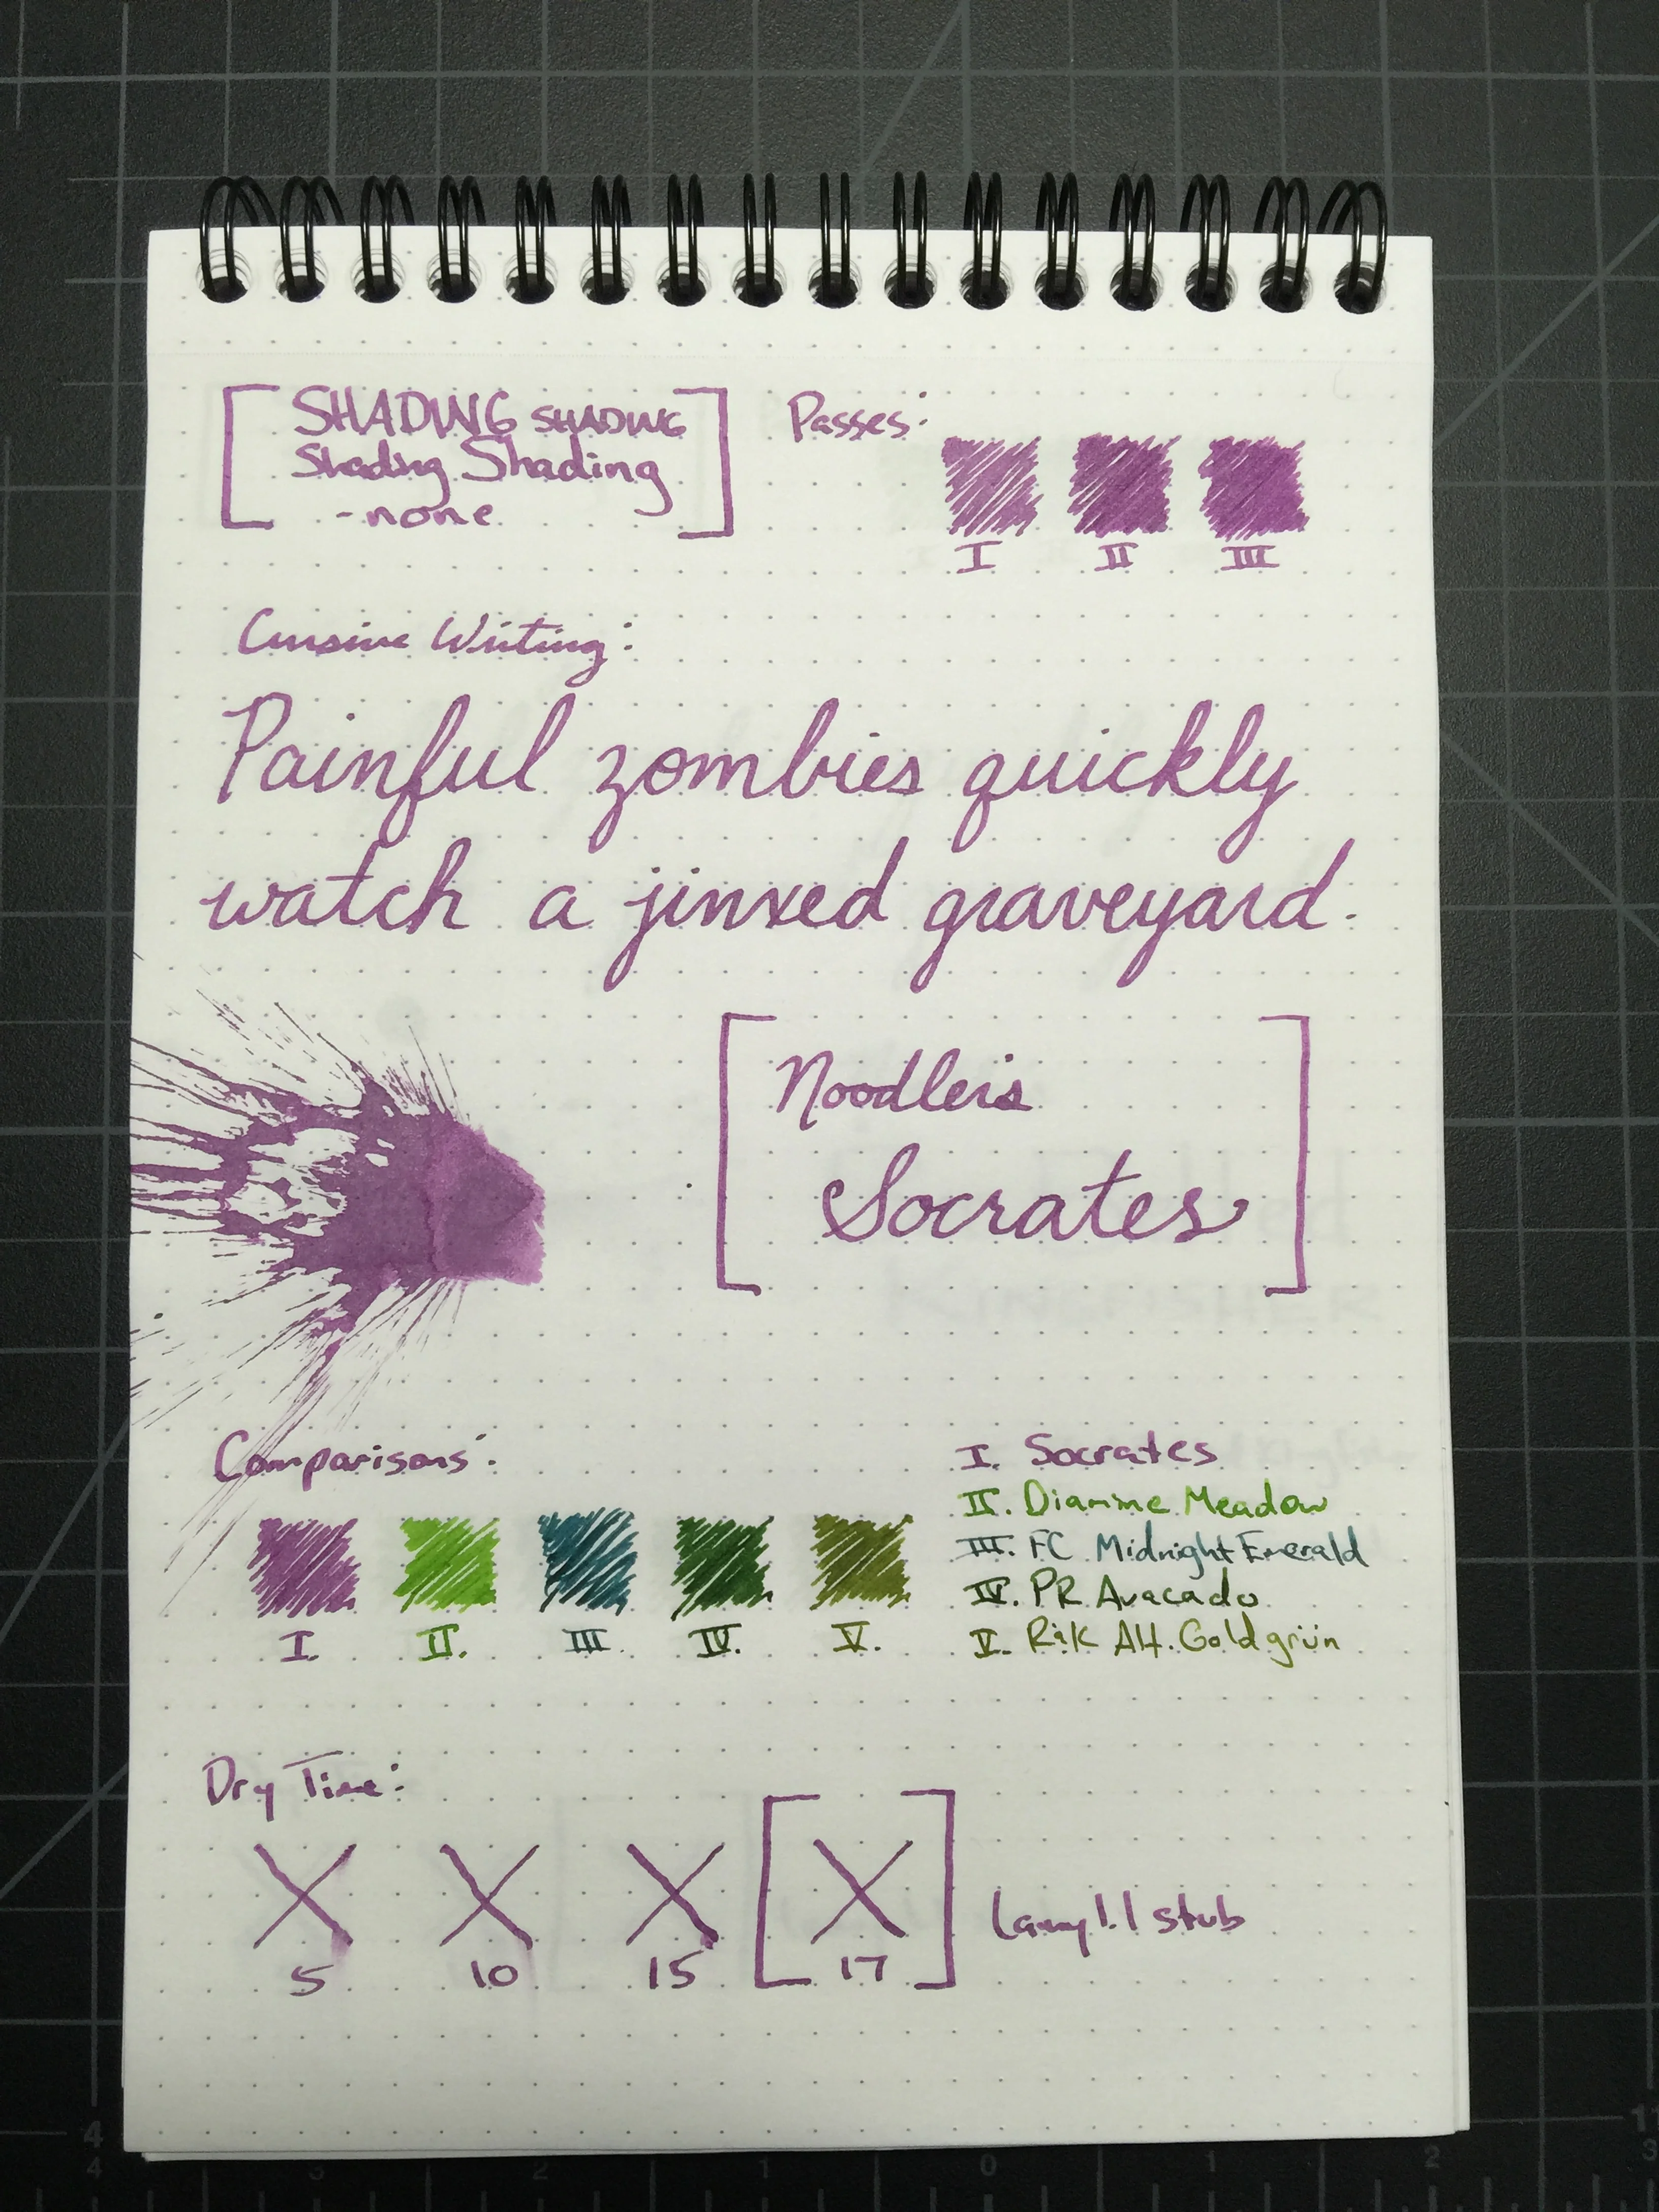 SHADING SHADING
Shading Shading
-none
Passes:
I II III
Cursive Writing:
Painful zombies quickly
watch a jinxed graveyard.
Noodler's
Socrates
Comparisons:
I. II. III. IV. V.
I. Socrates
II. Diamine Meadow
III. FC Midnight Emerald
IV. PR Avacado
V. R&K Alt. Goldgrün
Dry Time:
5 10 15 17
Lamy 1.1 stub
4 3 2 1 0 1 2
4